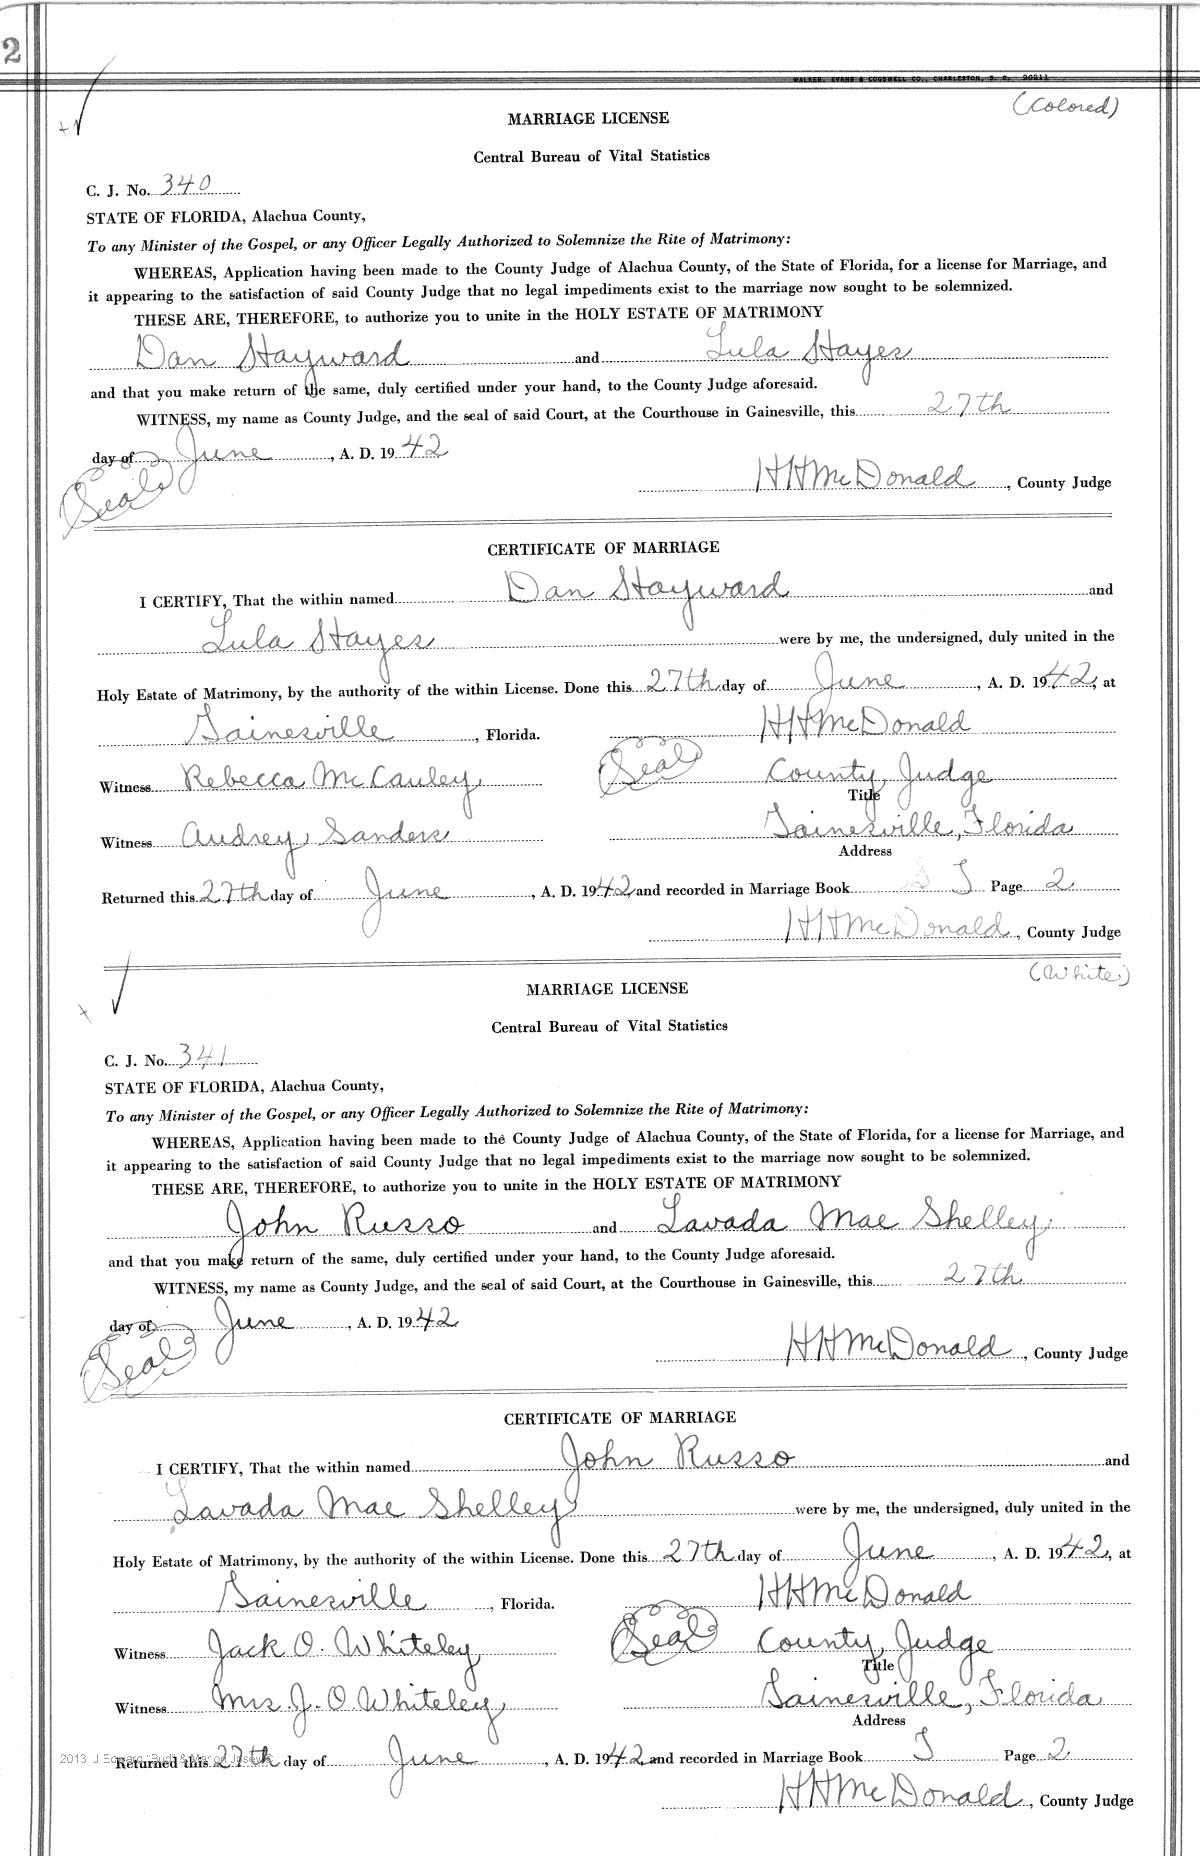 2
WALKER, EVANS & COGSWELL CO., CHARLESTON, S. C. 20211
(Colored)
MARRIAGE LICENSE
Central Bureau of Vital Statistics
C. J. No. 340
STATE OF FLORIDA, Alachua County,
To any Minister of the Gospel, or any Officer Legally Authorized to Solemnize the Rite of Matrimony:
WHEREAS, Application having been made to the County Judge of Alachua County, of the State of Florida, for a license for Marriage, and
it appearing to the satisfaction of said County Judge that no legal impediments exist to the marriage now sought to be solemnized.
THESE ARE, THEREFORE, to authorize you to unite in the HOLY ESTATE OF MATRIMONY
Dan Hayward and Lula Hayes
and that you make return of the same, duly certified under your hand, to the County Judge aforesaid.
WITNESS, my name as County Judge, and the seal of said Court, at the Courthouse in Gainesville, this 27th
day of June, A. D. 1942
(Seal)
HHMcDonald, County Judge
CERTIFICATE OF MARRIAGE
I CERTIFY, That the within named Dan Hayward and
Lula Hayes were by me, the undersigned, duly united in the
Holy Estate of Matrimony, by the authority of the within License. Done this 27th day of June, A. D. 1942, at
Gainesville, Florida. HHMcDonald
Witness Rebecca McCauley (Seal) County Judge
Title
Witness Audrey Sanders Gainesville, Florida
Address
Returned this 27th day of June, A. D. 1942 and recorded in Marriage Book J Page 2
HHMcDonald, County Judge
(White)
MARRIAGE LICENSE
Central Bureau of Vital Statistics
C. J. No. 341
STATE OF FLORIDA, Alachua County,
To any Minister of the Gospel, or any Officer Legally Authorized to Solemnize the Rite of Matrimony:
WHEREAS, Application having been made to the County Judge of Alachua County, of the State of Florida, for a license for Marriage, and
it appearing to the satisfaction of said County Judge that no legal impediments exist to the marriage now sought to be solemnized.
THESE ARE, THEREFORE, to authorize you to unite in the HOLY ESTATE OF MATRIMONY
John Russo and Lavada Mae Shelley
and that you make return of the same, duly certified under your hand, to the County Judge aforesaid.
WITNESS, my name as County Judge, and the seal of said Court, at the Courthouse in Gainesville, this 27th
day of June, A. D. 1942
(Seal)
HHMcDonald, County Judge
CERTIFICATE OF MARRIAGE
I CERTIFY, That the within named John Russo and
Lavada Mae Shelley were by me, the undersigned, duly united in the
Holy Estate of Matrimony, by the authority of the within License. Done this 27th day of June, A. D. 1942, at
Gainesville, Florida. HHMcDonald
Witness Jack O. Whiteley (Seal) County Judge
Title
Witness Mrs J. O Whiteley Gainesville, Florida
Address
2013 J Edward "Bud"
Returned this 27th day of June, A. D. 1942 and recorded in Marriage Book J Page 2
HHMcDonald, County Judge